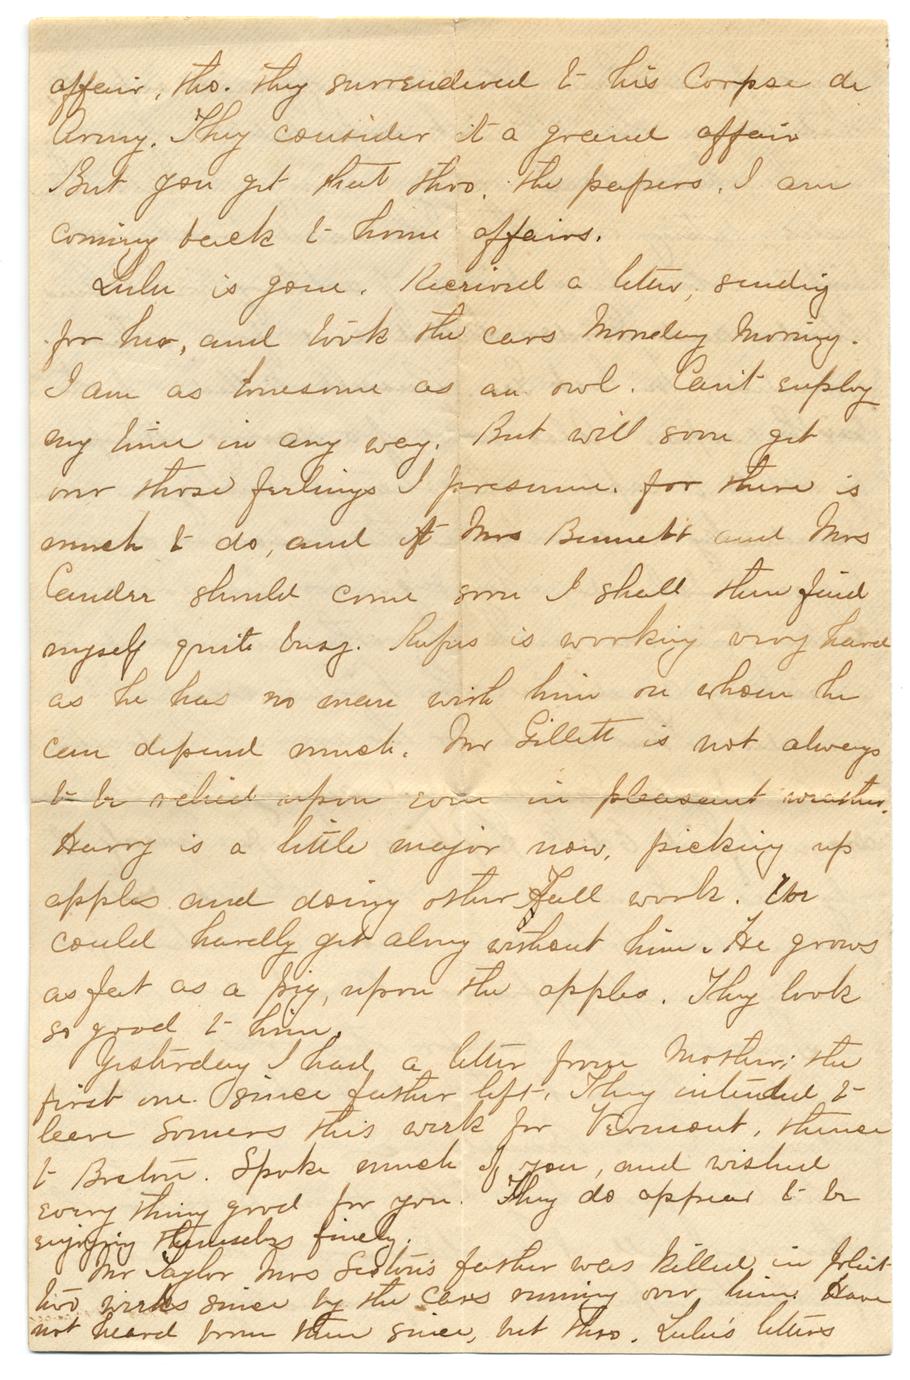 affair, tho. they surrendered to his Corpse de
Army. They consider it a grand affair
But you get that thro. the papers. I am
coming back to home affairs.
Lulu is gone. Received a letter, sending
for her, and took the cars Monday Morning.
I am as lonesome as an owl. Can't employ
my time in any way. But will soon get
over those feelings I presume. for there is
much to do, and if Mrs Bennett and Mrs
should come soon I shall then find
myself quite busy. Rufus is working very hard
as he has no man with him on whom he
can depend much. Mr Gillett is not always
to be relied upon even in pleasant weather.
Harry is a little major now, picking up
apples and doing other Fall work. We
could hardly get along without him. He grows
as fat as a pig, upon the apples. They look
so good to him.
Yesterday I had a letter from Mother; the
first one since father left. They intended to
leave Somers this week for Vermont, thence
to Boston. Spoke much of you, and wished
every thing good for you. They do appear to be
enjoying themselves finely.
Mr Taylor Mrs Sexton's father was killed in Joliet
two weeks since by the cars running over him. Have
not heard from them since, but thro. Lulu's letters